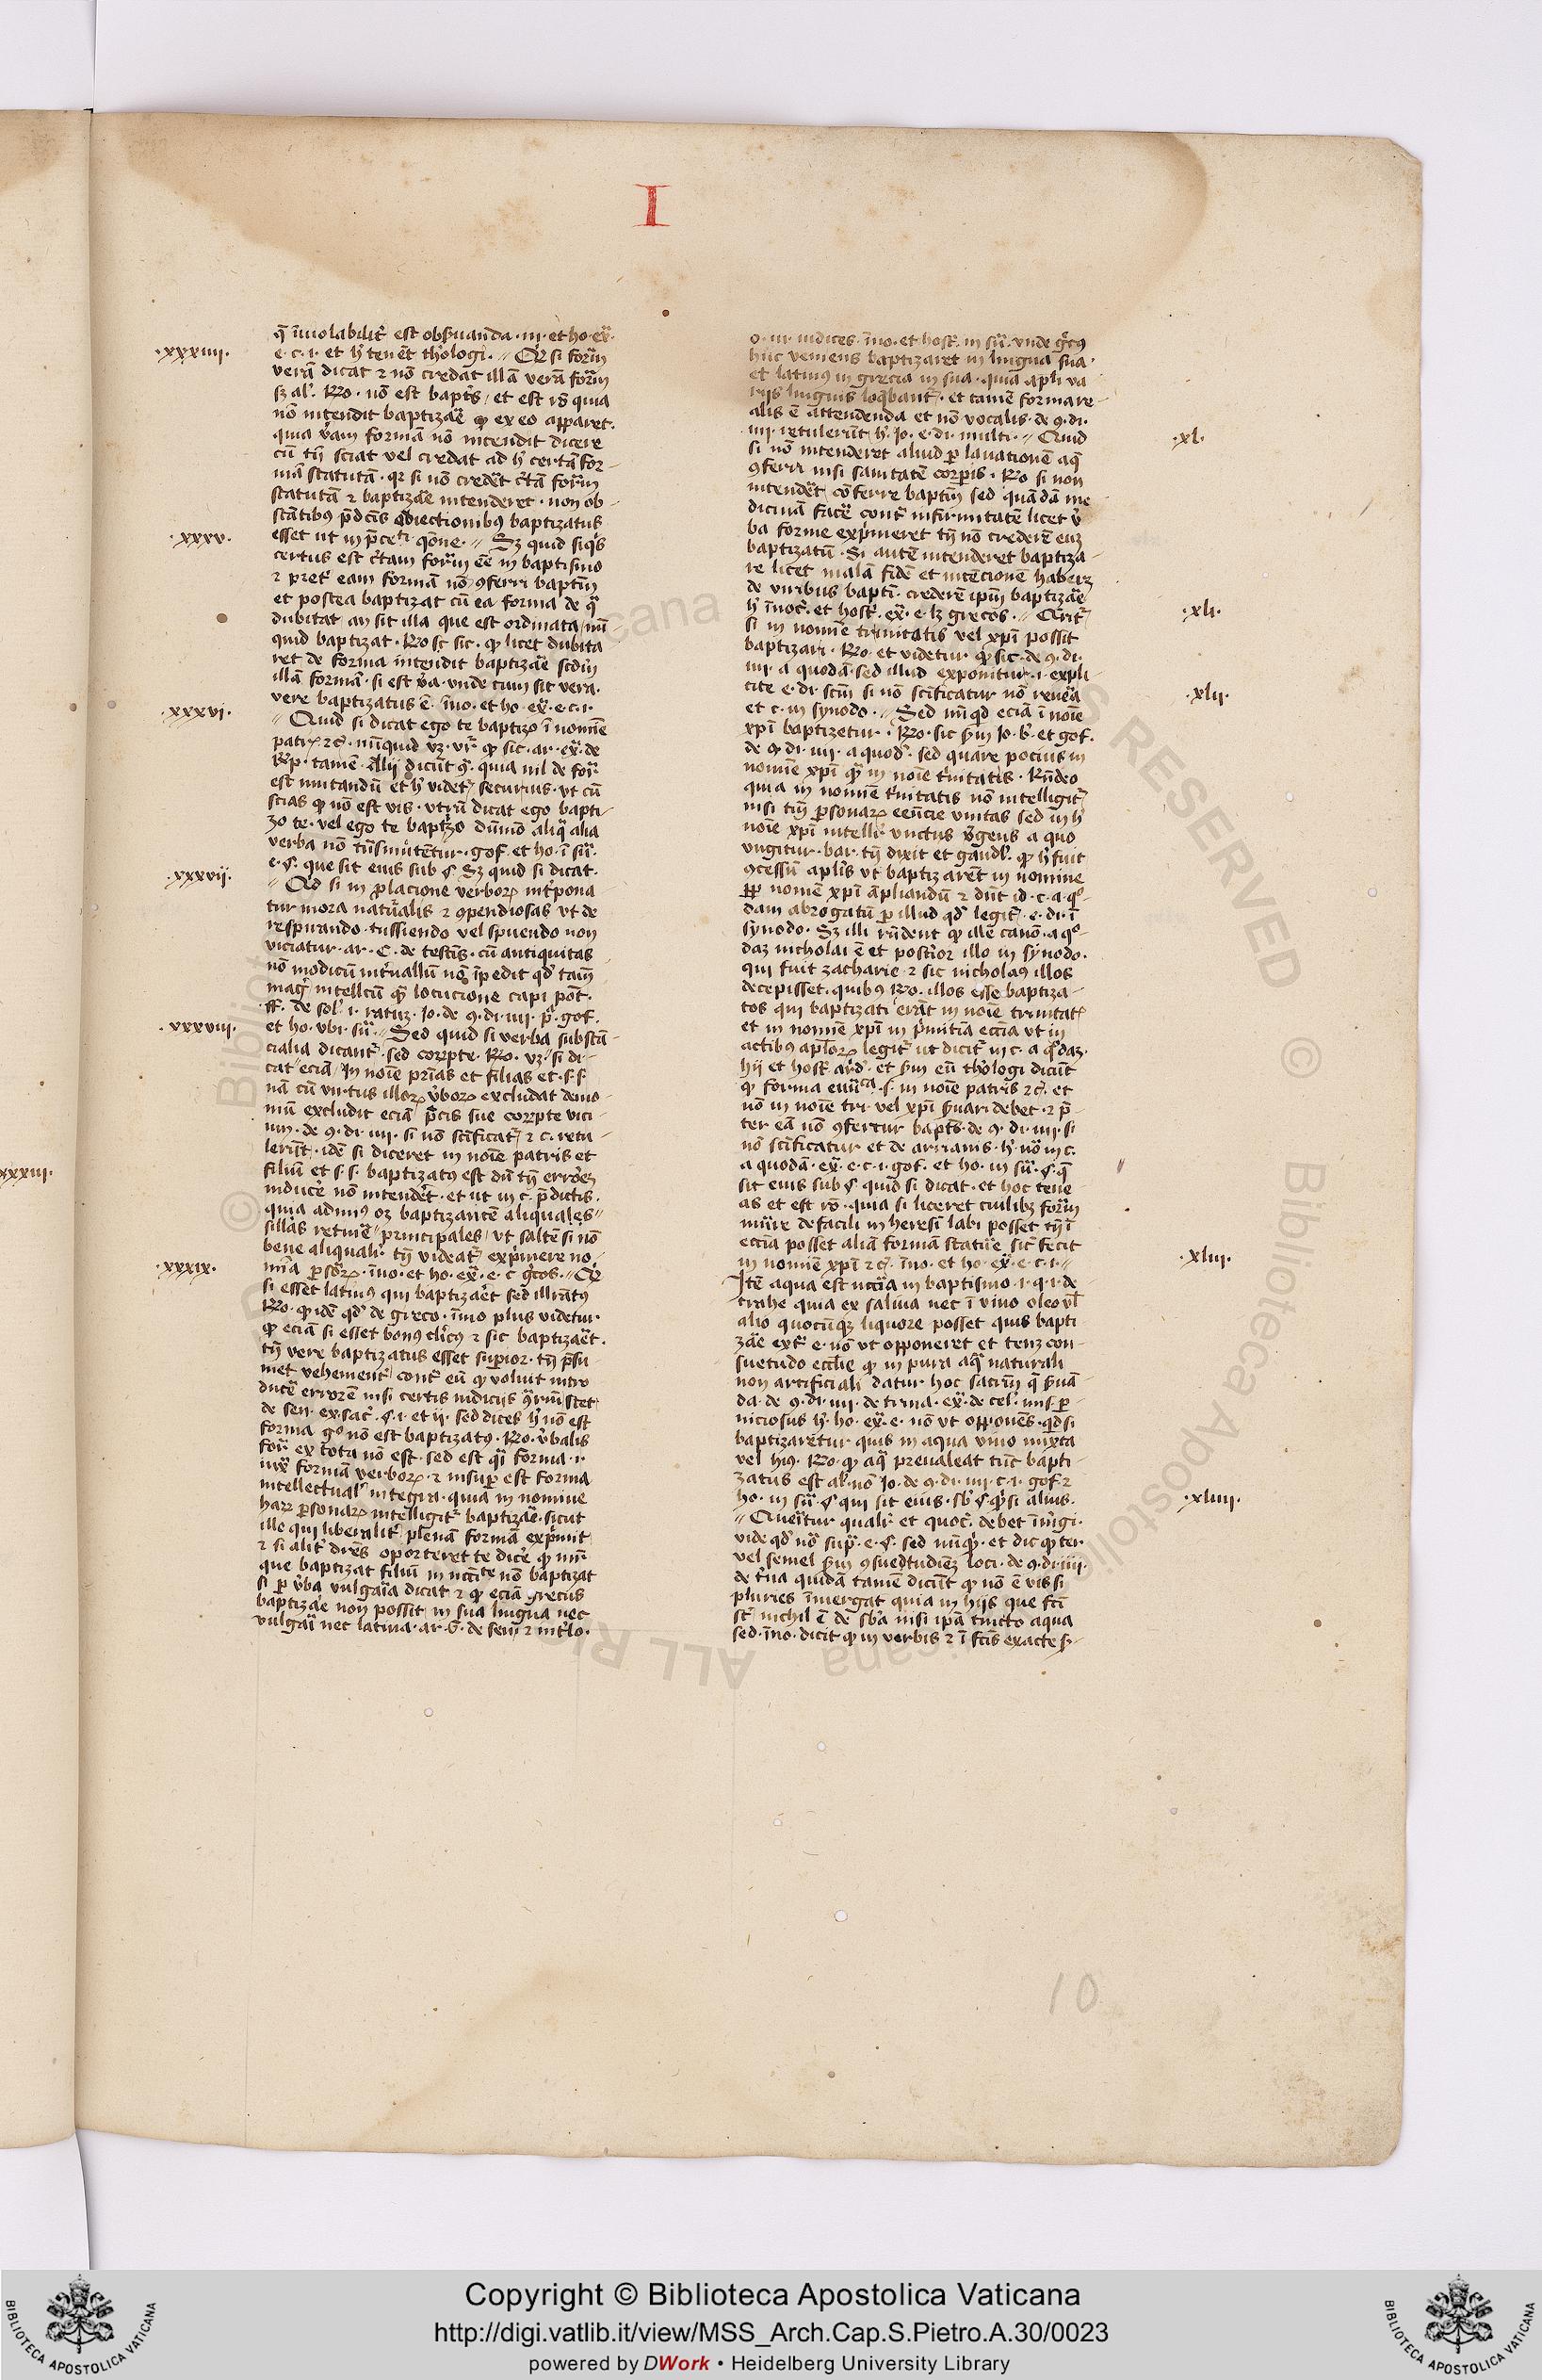 I
.xxxiiii.
q̄ īuiolabilit͛ est obs͛uanda · iij · et ho · ex̄ ·
e · c · i · et h͛ tenēt th͛ologi · // Q͛ si for͛m
verā dicat ⁊ nō credat illā verā for͛m
sꝫ al͛ · Rº · nō est bapt͛s / et est r͛o quia
nō intendit baptizāe ꝙ ex eo apparet ·
quia v͛am formā nō intendit dicere
cū tn̄ sciat vel credat ad h͛ certā for-
mā statutā · qꝛ si nō credēt c͛tā for͛m
statutā ⁊ baptizāe intenderet · non ob-
stātibꝰ p̄dc̄is obiectionibꝰ baptizatus
.xxxv.
esset ut in p̄ce͛ti qōne · // Sꝫ quid siq͛s
certus est c͛tam for͛m eē in baptismo
⁊ pret͛ eam formā nō ꝯferri baptm̄
et postea baptizat cū ea forma de q̄
dubitat an sit illa que est ordinata / nū
quid baptizat · Rº sc͛ sic · ꝙ licet dubita
ret de forma intendit baptizāe scdm̄
illā formā · si est v͛a · vnde cum sit vera ·
vere baptizatus ē · īno · et ho · ex̄ · e · c · i ·
.xxxvi.
// Quid si dicat ego te baptizo ī nomīe
pat͛s ⁊c̄ · nūquid vꝫ · vr͛ ꝙ sic · ar · ex̄ · de
· tamē · Alij dicūt ꝙ · quia nil de for͛
est mutandū et h͛ videt͛ securius · vt cū
scias ꝙ nō est vis · vtrū dicat ego bapti-
zo te · vel ego te baptizo dūmō aliq̄ alia
verba nō tn̄smitētur · gof · et ho · ī sū ·
.xxxvii.
e · § · que sit eius sub § Sꝫ quid si dicat ·
// Qd si in ꝓlacione verboꝝ int͛pona
tur mora nat͛ralis ⁊ ꝯpendiosas vt de
respirando · tussiendo vel spuendo non
viciatur · ar · C · de testīs · cū antiquitas
nō modicū int͛uallū nō īpedit qd͛ tam̄
mag͛ intellcū q̄ locucione capi pōt ·
ff · de sol͛ · i · ratuꝫ · Jo · de ꝯ · di · iiij · p̄ · gof ·
.xxxviii.
et ho · vbi · sū͛ · // Sed quid si verba substā
cialia dicant͛ · sed corrpte · Rº · vꝫ · si di-
cat eciā / In noīe prīas et filias et · s · f ·
nā cū virtus illoꝝ v͛boꝝ excludat demo-
niū excludit eciā p̄cis sue corrpte vici
um · de ꝯ · di · iiij · si nō sc̄ificat͛ ⁊ c · retu
lerūt · idē si diceret in noīe patris et
filiū et s · s · baptizatꝰ est dū tn̄ error̄eꝫ
inducē nō intendēt · et ut in c · p̄dictis ·
quia adimꝰ oꝫ baptizantē aliquales
sillas retinē / principales / vt saltē si nō
bene aliqualit͛ tn̄ videat͛ exp͛mere no-
.xxxix.
mīa p̄soꝝ · īno · et ho · ex̄ · e · c · grecos · // Q͛
si esset latinꝰ qui baptizaēt sed illiratꝰ
Rº · ꝙ idē qd͛ de greco · īmo plus videtur ·
ꝙ eciā si esset bonꝰ clicꝰ ⁊ sic baptizaēt ·
tn̄ vere baptizatus esset sup̄ior · tn̄ p̄su-
met͛ vehement͛ cont͛ eū ꝙ voluit intro
ducē errorē nisi certis indicijs
de sen · ex · sac͛ · § · i · et ii · sed dices h͛ nō est
forma gͦ nō est baptizatꝰ · Rº · v͛balis
for͛ ex tota nō est · sed est q̄i forma · i ·
formā verboꝝ · ⁊ insup͛ est forma
intellectual͛ integra · quia in nomine
haꝝ p̄sonaꝝ intelligit͛ baptizāe · sicut
ille qui liberalit͛ plenā formā exp͛mit
⁊ si alit͛ dicēs oporteret te dicē ꝙ mu͛
que baptizat filiū in ncc̄ite nō baptizat
si ꝑ v͛ba vulgaīa dicat ⁊ ꝙ eciā grecus
baptizāe non possit in sua lingua nec
vulgaī nec latina · ar · C · de sen͛ ⁊ int͛lo ·
o · iij · iudices · īno · et host͛ · in sū · vnde g͛cꝰ
huc veniens baptizaret in lingua sua ·
et latinꝰ in grecia in sua · quia apl̄i va
rijs linguis loq̄bant͛ · et tamē forma re-
alis ē attendenda et nō vocalis · de ꝯ · di ·
.xl.
iiij · retulerūt / h͛ · Jo · e · di · multi · // Quid
si nō intenderet aliud ꝑ lauationē aq̄
ꝯferri nisi sanitatē corpis · Rº si non
intendēt cōferre baptm̄ sed quādā me
dicinā facē cont͛ infirmitatē licet v͛
ba forme exp͛meret tn̄ nō crederē euꝫ
baptizatū · Si autē intenderet baptiza-
re licet malā fidē et intencionē haberꝫ
de viribus bapti · crederē ipm̄ baptizāe
.xli.
h͛ īnoc͛ · et host͛ · ex̄ · e · lꝫ grecos · // Qrit͛
si in nomīe trinitatis vel xp̄i possit
baptizari · Rº · et videtur · ꝙ sic · de ꝯ · di ·
iiij · a quodā · sed illud exponitur · i · expli
.xlii.
cite e · di · sc̄m si nō sc̄ificatur nō reuēa
et c · in synodo · // Sed nū qd eciā ī noīe
xp̄i baptizetur · Rº · sic s͛m Jo · b͛ · et gof ·
de ꝯ di · iiij · a quod͛ · sed quare pocius in
nomīe xp̄i q̄ in noīe t͛nitatis · Rn̄deo
quia in nomīe t͛nitatis nō intelligit͛
nisi tm̄ ꝑsonaꝝ eēncie vnitas sed in h͛
noīe xp̄i intelli͛ vnctus vngens a quo
vngitur · bar · tn̄ dixit et gaudl͛ · ꝙ h͛ fuit
ꝯcessū apl̄is vt baptizarēt in nomine
ꝑp nomē xp̄i āpliandū ⁊ dn̄t id · c · a qͦ-
dam abrogatū ꝑ illud qd͛ legit͛ · e · di · ī
synodo · Sꝫ illi rn̄dent ꝙ ille canō · a qͦ-
daꝫ nicholai ē et post͛ior illo in synodo ·
qui fuit zacharie ⁊ sic nicholaꝰ illos
decepisset · quibꝰ Rº · illos esse baptiza-
tos qui baptizati erāt in noīe trinitat͛
et in nomīe xp̄i in p͛mitīa ecc̄ia vt in
actibꝰ apl̄oꝝ legit͛ ut dicit͛ in c · a q͛daꝫ ·
hij et host͛ ard͛ · et s͛m eū th͛ologi dicūt
ꝙ forma euū͛ca · s · in noīe patris ⁊c̄ · et
nō in noīe tri · vel xp̄i s͛uari debet · ⁊ p̄-
ter eā nō ꝯfertur bapt͛s · de ꝯ · di · iiij · si
nō sc̄ificatur et de arrianis · h͛ nō in c ·
a quodā · ex̄ · e · c · i · gof · et ho · in sū͛ · § · q̄
sit eius sub § quid si dicat · et hoc tene
as et est rō · quia si liceret ciuilibꝫ for͛m
mū͛re de facili in heresī labi posset tn̄ ī
ecc̄ia posset aliā formā statūe sic͛ fecit
.xliii.
in nomīe xp̄i ⁊c̄ · īno · et ho · ex̄ · e · c · i · //
Itē aqua est ncc̄īa in baptismo · i · q · i · de-
trahe quia ex saliua nec ī vino oleo vl̄
alio quocūqꝫ liquore posset quis bapti
zāe ext͛ · e · nō vt opponeret et tenꝫ con-
suetudo ecclīe ꝙ in pura aq̄ naturali
non artificiali datur hoc sacrm̄ q̄ s͛uā
da · de ꝯ · di · iiij · de trina · ex̄ · de cel͛ · mis · ꝑ-
niciosus h͛ · ho · ex̄ · e · nō vt opponēs · qd͛ si
baptizaretur quis in aqua vino mixta
vel hijꝰ · Rº · ꝙ aq̄ preualeat tūc bapti-
zatus est al͛ · nō Jo · de ꝯ · di · iiij · c · i · gof · ⁊
.xliiii.
ho · in sū͛ § qui sit eius · sb͛ § q͛ si alius ·
// Queritur qualit͛ et quoc͛ · debet īm͛gi ·
vide qd͛ nō sup̄ · e · § · sed nūq͛ · et dic ꝙ ter ·
vel semel s͛m ꝯsuetudinēꝫ loci · de ꝯ · di · iiij ·
de t͛na quidā tamē dicūt ꝙ nō ē vis si
pluries īmergat quia in hijs que fc̄i
sūt nichil ē de sb͛a nisi ipā tinctio aqua
sed · īno · dicit ꝙ in verbis ⁊ ī fc̄is exacte s͛-
xxxiii.
10
Copyright © Biblioteca Apostolica Vaticana
http://digi.vatlib.it/view/MSS_Arch.Cap.S.Pietro.A.30/0023
powered by DWork • Heidelberg University Library
BIBLIOTECA APOSTOLICA VATICANA
BIBLIOTECA APOSTOLICA VATICANA
© Biblioteca Apostolica Vaticana ALL RIGHTS RESERVED